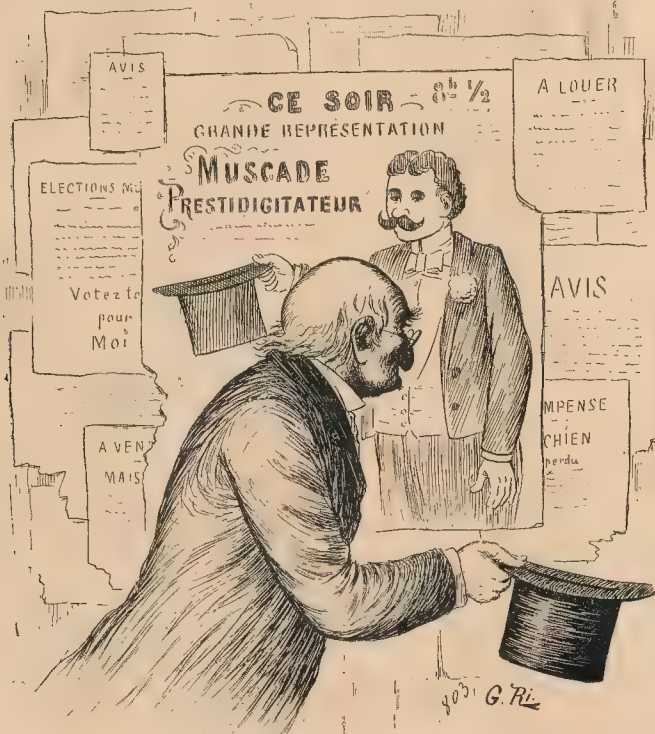 AVIS
CE SOIR 8h 1/2
GRANDE REPRÉSENTATION
MUSCADE
PRESTIDIGITATEUR
A LOUER
ELECTIONS MU
Votez to
pour
Moi
AVIS
A VEN
MAIS
MPENSE
CHIEN
perdu
803, G. Ri.